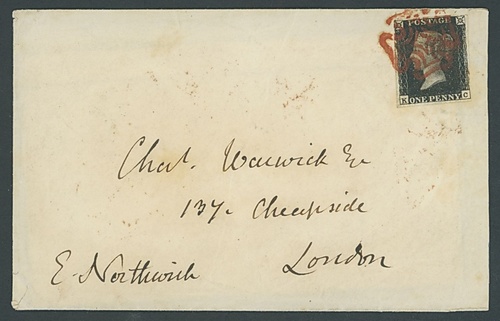 POSTAGE
K ONE PENNY C
Chas. Warwick Esq
137. Cheapside
London
E. Northwick